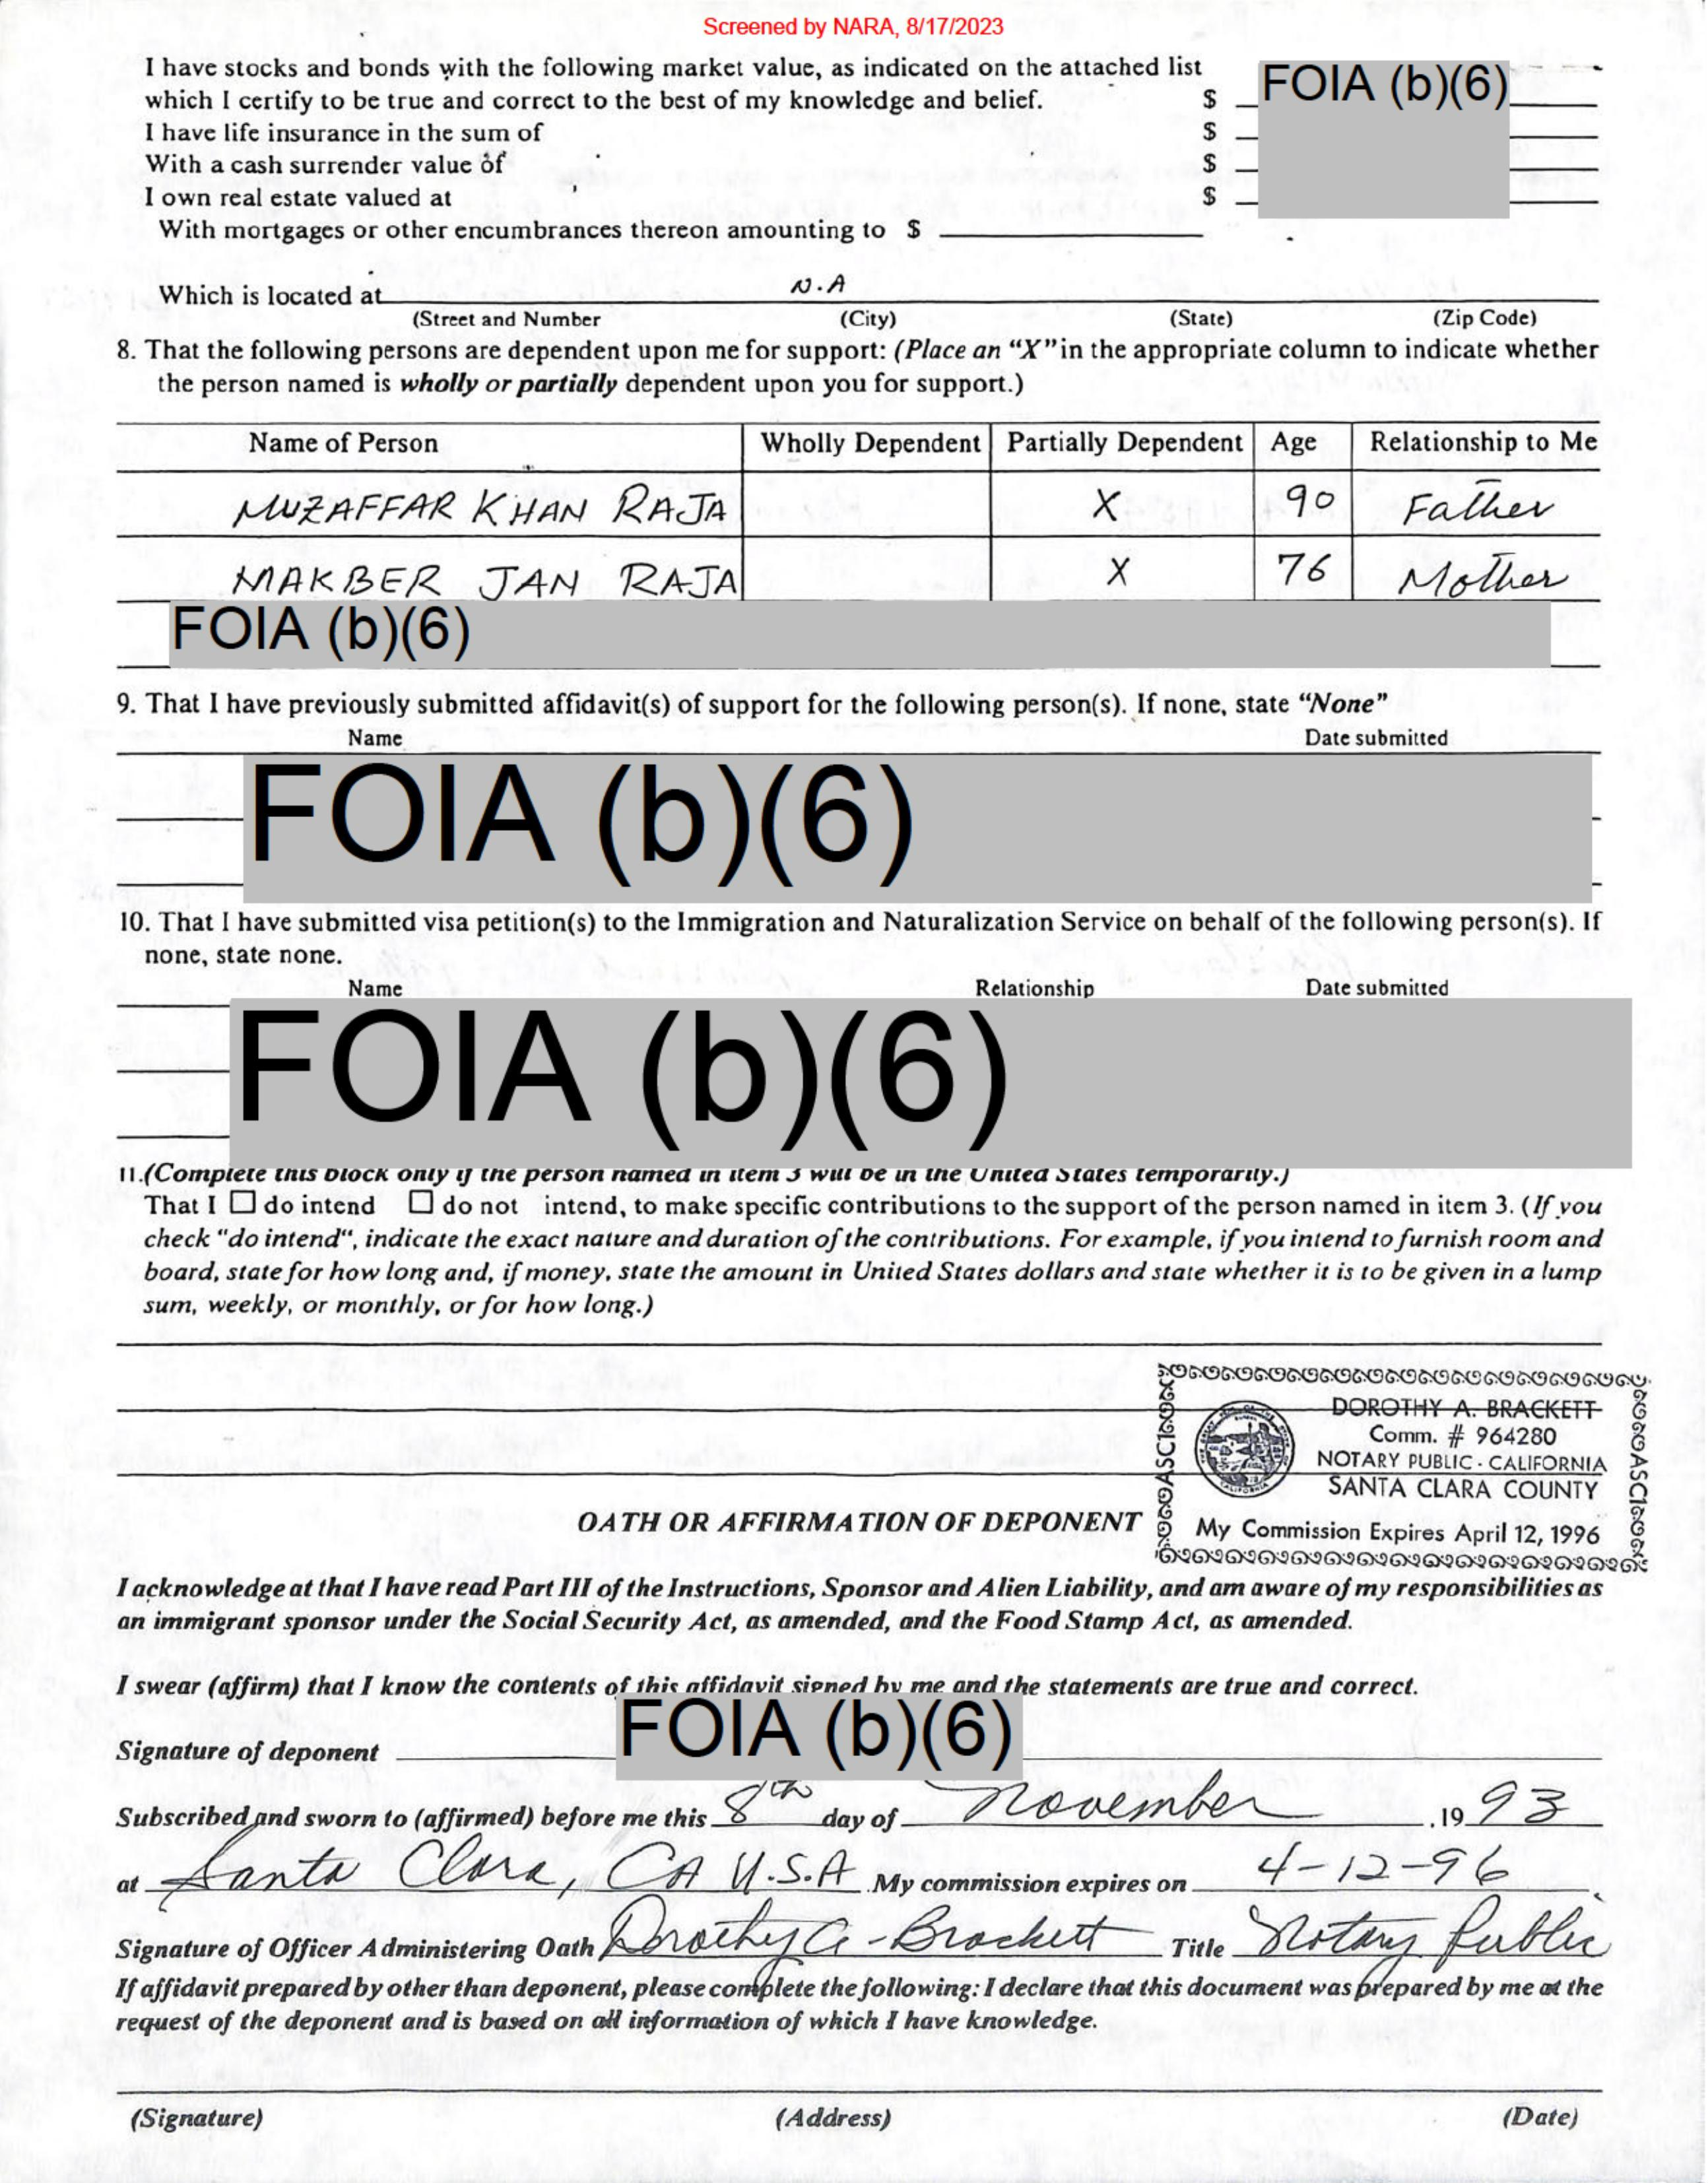 Screened by NARA, 8/17/2023
I have stocks and bonds with the following market value, as indicated on the attached list
which I certify to be true and correct to the best of my knowledge and belief. $ FOIA (b)(6)
I have life insurance in the sum of $
With a cash surrender value of $
I own real estate valued at $
With mortgages or other encumbrances thereon amounting to $
Which is located at N.A
(Street and Number (City) (State) (Zip Code)
8. That the following persons are dependent upon me for support: (Place an “X” in the appropriate column to indicate whether
the person named is wholly or partially dependent upon you for support.)
Name of Person Wholly Dependent Partially Dependent Age Relationship to Me
MUZAFFAR KHAN RAJA X 90 Father
MAKBER JAN RAJA X 76 Mother
FOIA (b)(6)
9. That I have previously submitted affidavit(s) of support for the following person(s). If none, state “None”
Name Date submitted
FOIA (b)(6)
10. That I have submitted visa petition(s) to the Immigration and Naturalization Service on behalf of the following person(s). If
none, state none.
Name Relationship Date submitted
FOIA (b)(6)
11.(Complete this block only if the person named in item 3 will be in the United States temporarily.)
That I ☐ do intend ☐ do not intend, to make specific contributions to the support of the person named in item 3. (If you
check "do intend", indicate the exact nature and duration of the contributions. For example, if you intend to furnish room and
board, state for how long and, if money, state the amount in United States dollars and state whether it is to be given in a lump
sum, weekly, or monthly, or for how long.)
DOROTHY A. BRACKETT
Comm. # 964280
NOTARY PUBLIC - CALIFORNIA
SANTA CLARA COUNTY
My Commission Expires April 12, 1996
OATH OR AFFIRMATION OF DEPONENT
I acknowledge at that I have read Part III of the Instructions, Sponsor and Alien Liability, and am aware of my responsibilities as
an immigrant sponsor under the Social Security Act, as amended, and the Food Stamp Act, as amended.
I swear (affirm) that I know the contents of this affidavit signed by me and the statements are true and correct.
Signature of deponent FOIA (b)(6)
Subscribed and sworn to (affirmed) before me this 8th day of November ,19 93
at Santa Clara, CA U.S.A .My commission expires on 4-12-96
Signature of Officer Administering Oath Dorothy A - Brackett Title Notary Public
If affidavit prepared by other than deponent, please complete the following: I declare that this document was prepared by me at the
request of the deponent and is based on all information of which I have knowledge.
(Signature) (Address) (Date)